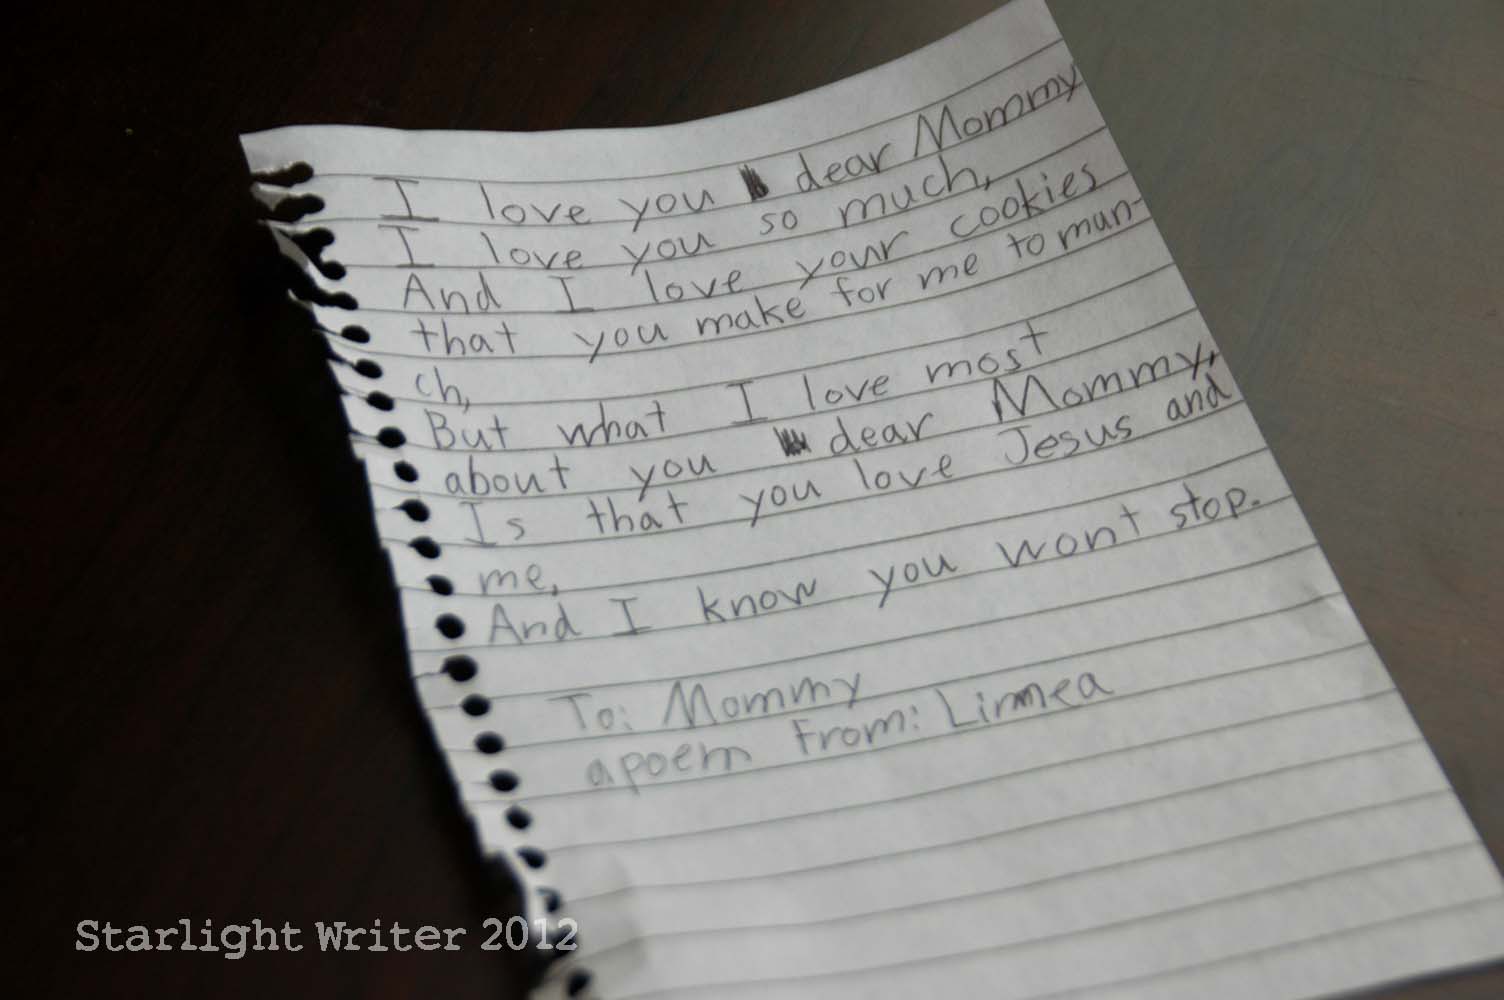 I love you dear Mommy
I love you so much,
And I love your cookies
that you make for me to mun-
ch,
But what I love most
about you dear Mommy,
Is that you love Jesus and
me,
And I know you wont stop.
To: Mommy
a poem From: Linnea
Starlight Writer 2012